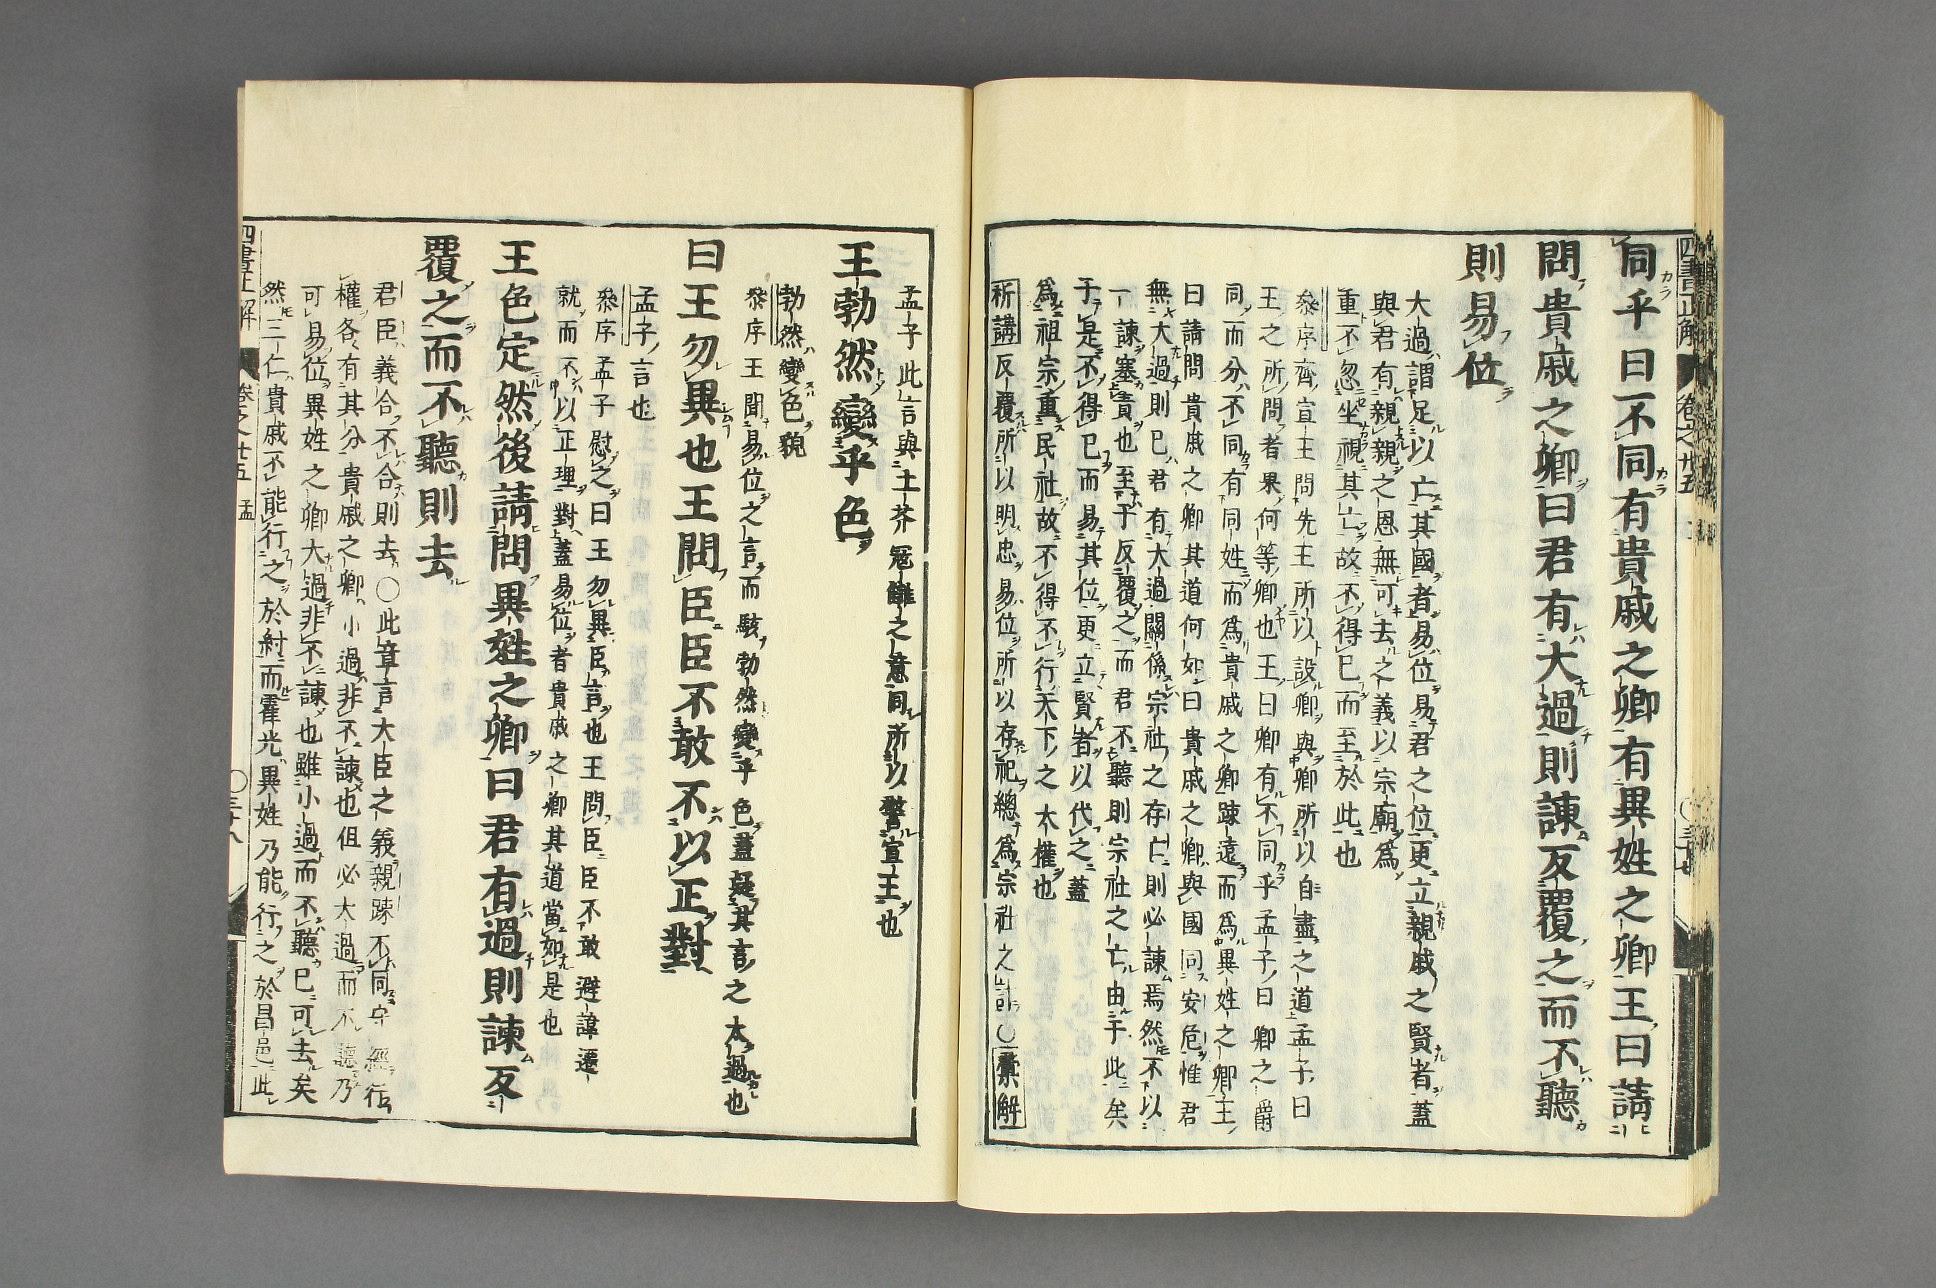 四書正解 卷之廿五
同乎曰不同有貴戚之卿有異姓之卿王曰請
問貴戚之卿曰君有大過則諫反覆之而不聽
則易位
大過謂足以亡其國者易位易君之位更立親戚之賢者蓋
與君有親親之恩無可去之義以宗廟為
重不忍坐視其亡故不得已而至於此也
叅序齊宣王問先王所以設卿與卿所以自盡之道孟子曰
王之所問者果何等卿也王曰卿有不同乎孟子曰卿之爵
同而分不同有同姓而為貴戚之卿踈遠而為異姓之卿王
曰請問貴戚之卿其道何如曰貴戚之卿與國同安危惟君
無大過則已君有大過關係宗社之存亡則必諫焉然不以
一諫塞責也至于反覆之而君不聽則宗社之亡由于此矣
于是不得已而易其位更立賢者以代之蓋
為祖宗重民社故不得不行天下之大權也
析講反覆所以明忠易位所以存祀總為宗社之計〇彙解
孟子此言與土芥寇讎之意同所以警宣王也
王勃然變乎色
勃然變色貌
叅序王聞易位之言而駭勃然變乎色蓋疑其言之太過也
曰王勿異也王問臣臣不敢不以正對
孟子言也
叅序孟子慰之曰王勿異臣言也王問臣臣不敢避諱遷
就而不以正理對蓋易位者貴戚之卿其道當如是也
王色定然後請問異姓之卿曰君有過則諫反
覆之而不聽則去
君臣義合不合則去〇此章言大臣之義親踈不同守經行
權各有其分貴戚之卿小過非不諫也但必大過而不聽乃
可易位異姓之卿大過非不諫也雖小過而不聽已可去矣
然三仁貴戚不能行之於紂而霍光異姓乃能行之於昌邑此
四書正解 卷之廿五 孟 〇三十八